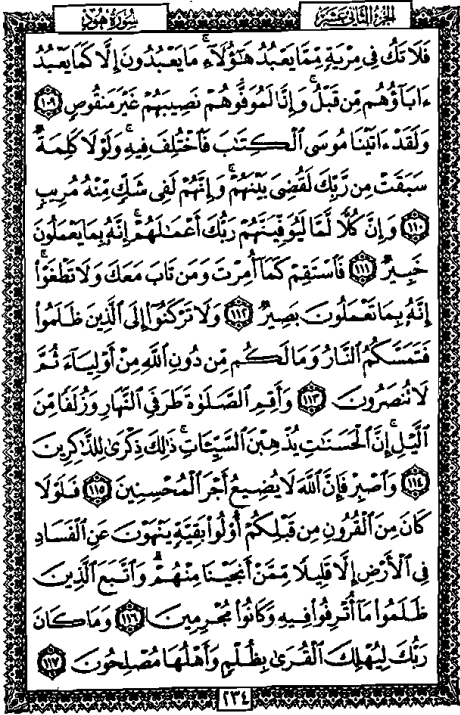 سُورَةُ هُودٍ الجزء الثاني عشر
فَلَا تَكُ فِى مِرْيَةٍ مِّمَّا يَعْبُدُ هَٰٓؤُلَآءِ ۚ مَا يَعْبُدُونَ إِلَّا كَمَا يَعْبُدُ
ءَابَآؤُهُم مِّن قَبْلُ ۚ وَإِنَّا لَمُوَفُّوهُمْ نَصِيبَهُمْ غَيْرَ مَنقُوصٍ ١٠٩
وَلَقَدْ ءَاتَيْنَا مُوسَى ٱلْكِتَٰبَ فَٱخْتُلِفَ فِيهِ ۚ وَلَوْلَا كَلِمَةٌ
سَبَقَتْ مِن رَّبِّكَ لَقُضِىَ بَيْنَهُمْ ۚ وَإِنَّهُمْ لَفِى شَكٍّ مِّنْهُ مُرِيبٍ
١١٠ وَإِنَّ كُلًّا لَّمَّا لَيُوَفِّيَنَّهُمْ رَبُّكَ أَعْمَٰلَهُمْ ۚ إِنَّهُۥ بِمَا يَعْمَلُونَ
خَبِيرٌ ١١١ فَٱسْتَقِمْ كَمَآ أُمِرْتَ وَمَن تَابَ مَعَكَ وَلَا تَطْغَوْا۟ ۚ
إِنَّهُۥ بِمَا تَعْمَلُونَ بَصِيرٌ ١١٢ وَلَا تَرْكَنُوٓا۟ إِلَى ٱلَّذِينَ ظَلَمُوا۟
فَتَمَسَّكُمُ ٱلنَّارُ وَمَا لَكُم مِّن دُونِ ٱللَّهِ مِنْ أَوْلِيَآءَ ثُمَّ
لَا تُنصَرُونَ ١١٣ وَأَقِمِ ٱلصَّلَوٰةَ طَرَفَىِ ٱلنَّهَارِ وَزُلَفًا مِّنَ
ٱلَّيْلِ ۚ إِنَّ ٱلْحَسَنَٰتِ يُذْهِبْنَ ٱلسَّيِّـَٔاتِ ۚ ذَٰلِكَ ذِكْرَىٰ لِلذَّٰكِرِينَ
١١٤ وَٱصْبِرْ فَإِنَّ ٱللَّهَ لَا يُضِيعُ أَجْرَ ٱلْمُحْسِنِينَ ١١٥ فَلَوْلَا
كَانَ مِنَ ٱلْقُرُونِ مِن قَبْلِكُمْ أُو۟لُوا۟ بَقِيَّةٍ يَنْهَوْنَ عَنِ ٱلْفَسَادِ
فِى ٱلْأَرْضِ إِلَّا قَلِيلًا مِّمَّنْ أَنجَيْنَا مِنْهُمْ ۗ وَٱتَّبَعَ ٱلَّذِينَ
ظَلَمُوا۟ مَآ أُتْرِفُوا۟ فِيهِ وَكَانُوا۟ مُجْرِمِينَ ١١٦ وَمَا كَانَ
رَبُّكَ لِيُهْلِكَ ٱلْقُرَىٰ بِظُلْمٍ وَأَهْلُهَا مُصْلِحُونَ ١١٧
٢٣٤